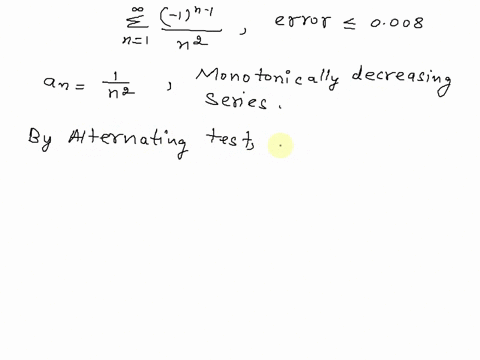 ∞
∑ (-1)^{n-1} / n² , error ≤ 0.008
n=1
a_n = 1/n² , Monotonically decreasing
series.
By Alternating test,